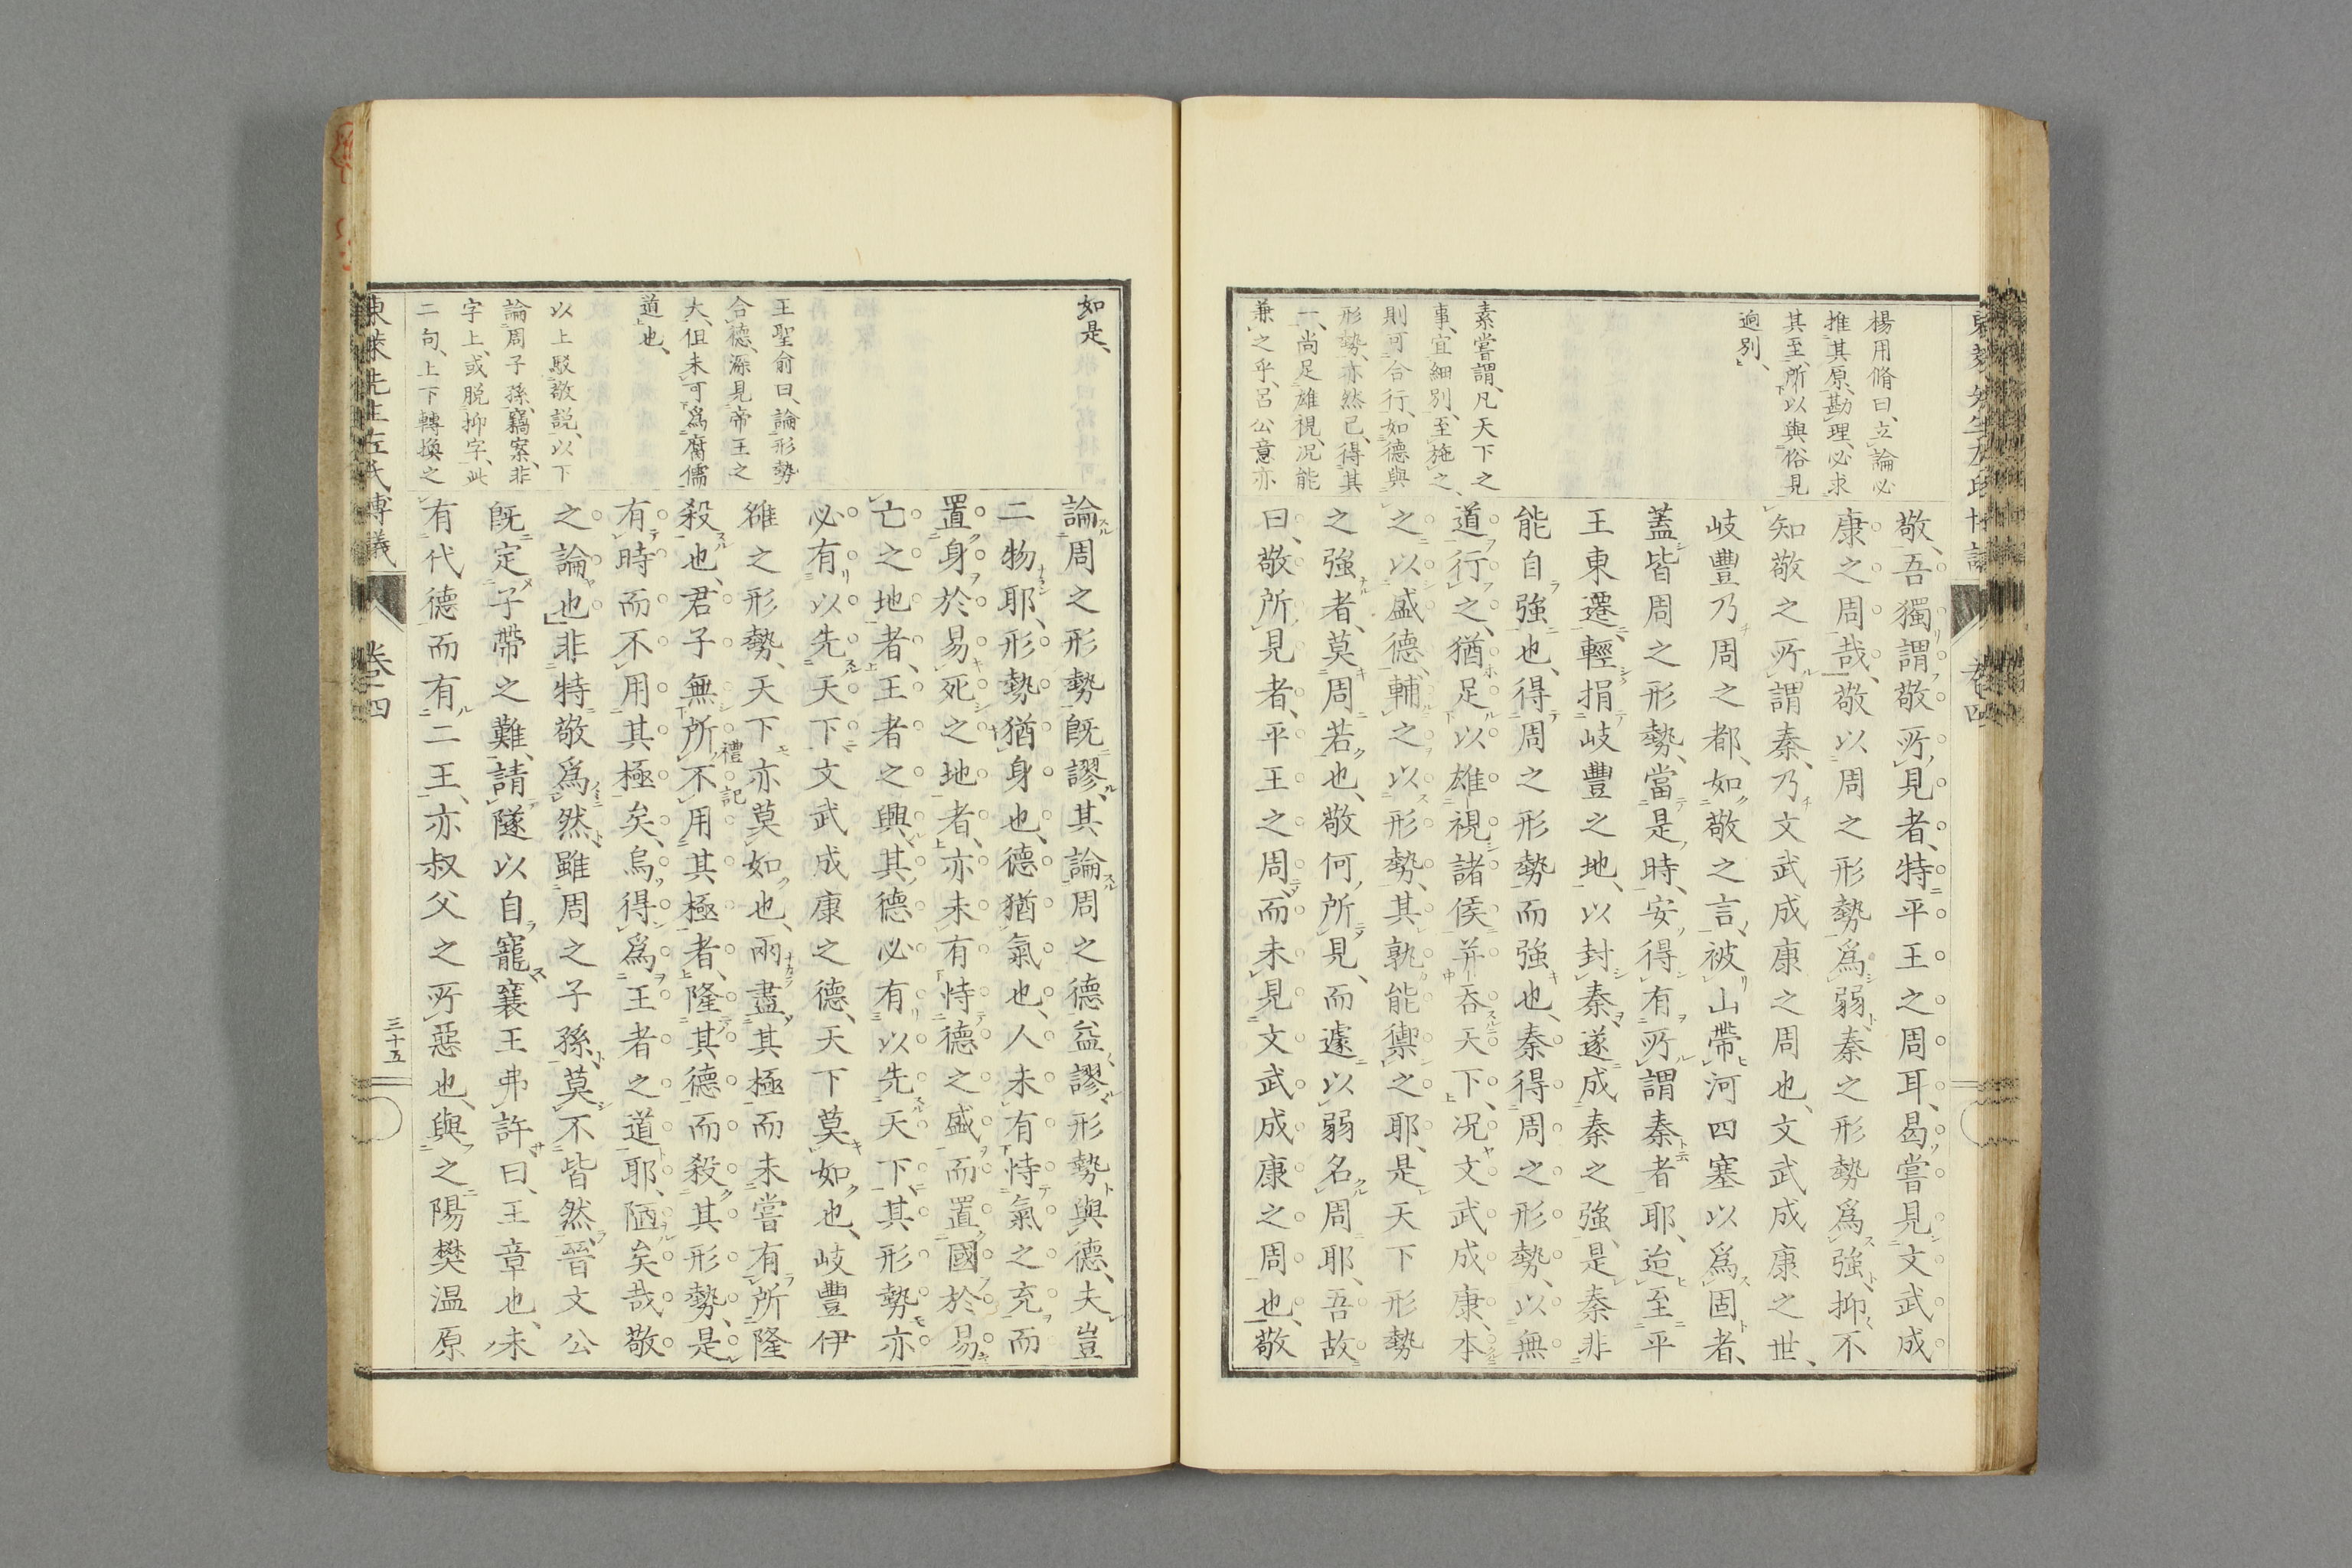 楊用脩曰、立論必
推其原、勘理、必求
其至、所以與俗見
逈別、
素嘗謂、凡天下之
事、宜細別、至施之、
則可合行、如德與
形勢、亦然已、得其
一、尚足雄視、況能
兼之乎、呂公意亦
敬、吾獨謂敬所見者、特平王之周耳、曷嘗見文武成
康之周哉、敬以周之形勢爲弱、秦之形勢爲強、抑不
知敬之所謂秦、乃文武成康之周也、文武成康之世、
岐豐乃周之都、如敬之言、被山帶河四塞以爲固者、
蓋皆周之形勢、當是時、安得有所謂秦者耶、迨至平
王東遷、輕捐岐豐之地、以封秦、遂成秦之強、是秦非
能自強也、得周之形勢而強也、秦得周之形勢、以無
道行之、猶足以雄視諸侯并吞天下、況文武成康、本
之以盛德、輔之以形勢、其孰能禦之耶、是天下形勢
之強者、莫周若也、敬何所見、而遽以弱名周耶、吾故
曰、敬所見者、平王之周、而未見文武成康之周也、敬
如是、
王聖俞曰、論形勢
合德、深見帝王之
大、但未可爲腐儒
道也、
以上駁敬説、以下
論周子孫、竊案、非
字上、或脱抑字、此
二句、上下轉換之
論周之形勢既謬、其論周之德益謬、形勢與德、夫豈
二物耶、形勢猶身也、德猶氣也、人未有恃氣之充而
置身於易死之地者、亦未有恃德之盛而置國於易
亡之地者、王者之興、其德必有以先天下、其形勢亦
必有以先天下、文武成康之德、天下莫如也、岐豐伊
雒之形勢、天下亦莫如也、兩盡其極而未嘗有所隆
殺也、君子無所不用其極者、隆其德而殺其形勢、是
禮記
有時而不用其極矣、烏得爲王者之道耶、陋矣哉敬
之論也、非特敬爲然、雖周之子孫、莫不皆然、晉文公
既定子帶之難、請隧以自寵、襄王弗許曰、王章也、未
有代德而有二王、亦叔父之所惡也、與之陽樊温原
東萊先生左氏博議
卷四
三十五